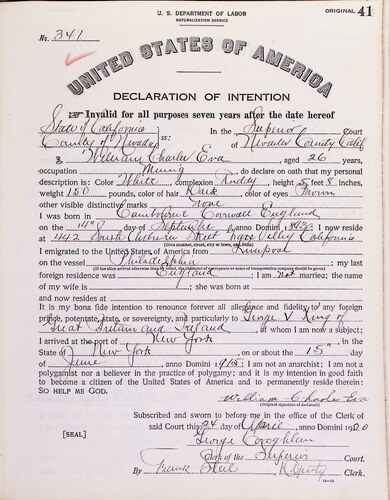 U. S. DEPARTMENT OF LABOR
NATURALIZATION SERVICE
ORIGINAL 41
No. 341
UNITED STATES OF AMERICA
DECLARATION OF INTENTION
Invalid for all purposes seven years after the date hereof
State of California
County of Nevada ss: In the Superior Court of Nevada County Calif
I, William Charles Eva, aged 26 years,
occupation Mining, do declare on oath that my personal
description is: Color White, complexion Ruddy, height 5 feet 8 inches,
weight 150 pounds, color of hair Dark, color of eyes Brown
other visible distinctive marks none
I was born in Cambourne Cornwall England
on the day of September, anno Domini; I now reside
at 442 South Auburn Street Grass Valley California
(Give number, street, city or town, and State)
I emigrated to the United States of America from Liverpool
on the vessel Philadelphia; my last
(If the alien arrived otherwise than by vessel, the character of conveyance or name of transportation company should be given)
foreign residence was England. I am not married; the name
of my wife is; she was born at
and now resides at
It is my bona fide intention to renounce forever all allegiance and fidelity to any foreign
prince, potentate, state, or sovereignty, and particularly to George V King of
Great Britain and Ireland, of whom I am now a subject;
I arrived at the port of New York, in the
State of New York, on or about the 15" day
of June, anno Domini 1915: I am not an anarchist; I am not a
polygamist nor a believer in the practice of polygamy; and it is my intention in good faith
to become a citizen of the United States of America and to permanently reside therein:
SO HELP ME GOD.
William Charles Eva
(Original signature of declarant)
Subscribed and sworn to before me in the office of the Clerk of
said Court this day of April, anno Domini 1920
[SEAL]
George Coughlan
Clerk of the Superior Court.
By Frank Steel, Deputy Clerk.